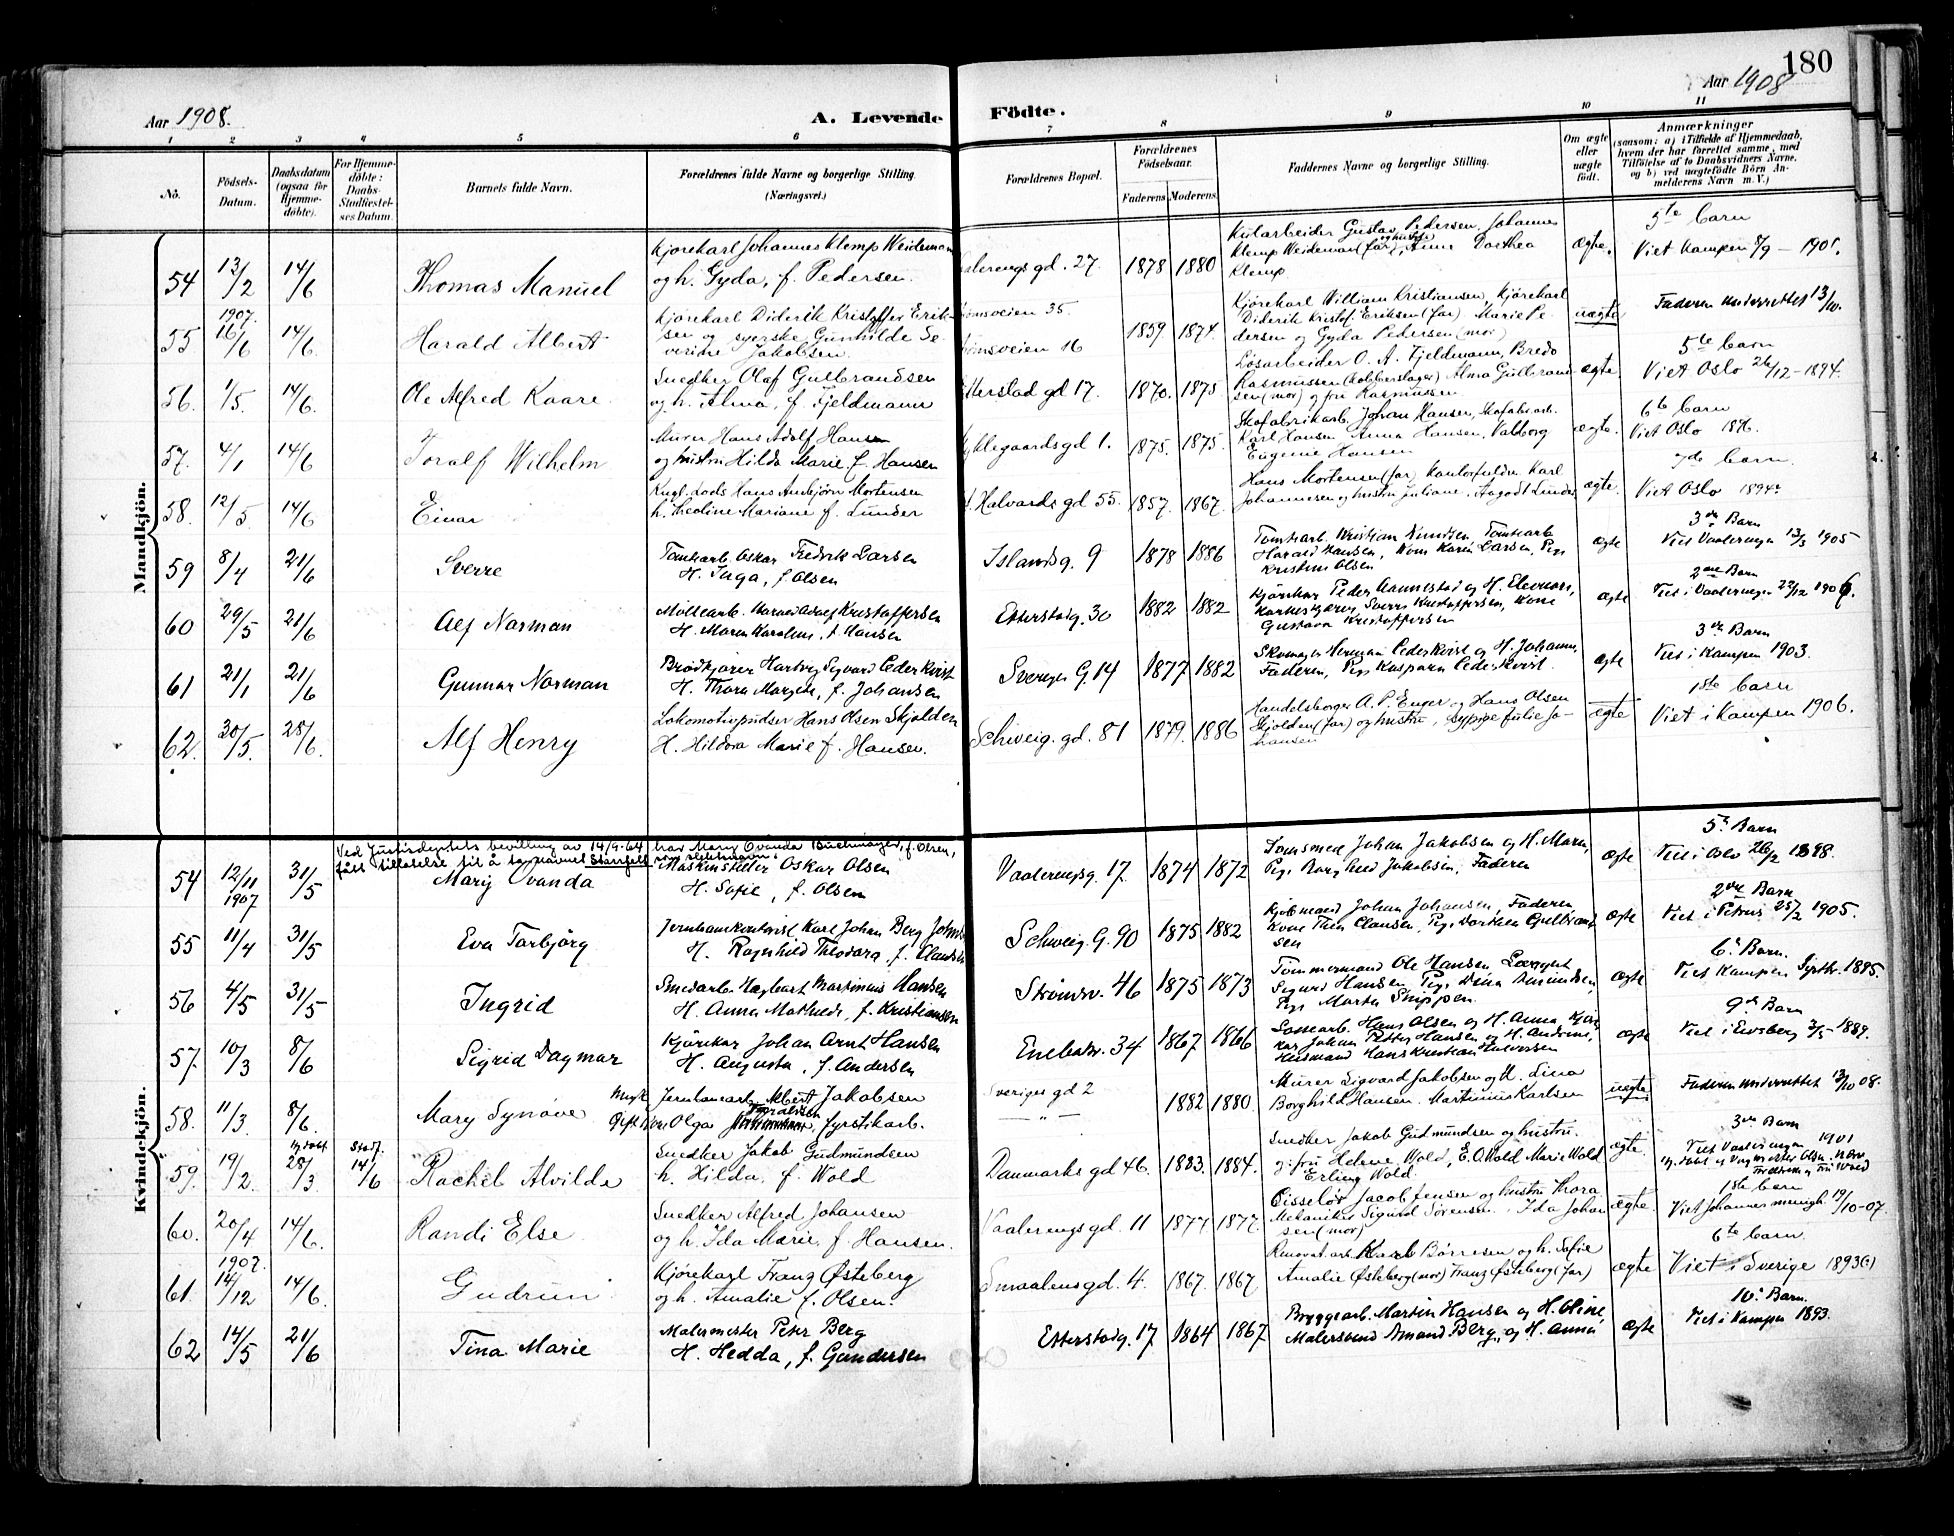 180
Aar 1908.
A. Levende
Födte.
Aar 1908
1 2 3 4 5 6 7 8 9 10 11
No.
Födsels-
Datum.
Daabsdatum
(ogsaa for
Hjemme-
döbte).
For Hjemme-
döbte:
Daabs-
Stadfæstel-
ses Datum.
Barnets fulde Navn.
Forældrenes fulde Navne og borgerlige Stilling.
(Næringsvei.)
Forældrenes Bopæl.
Forældrenes
Födselsaar.
Faderens Moderens
Faddernes Navne og borgerlige Stilling.
Om ægte
eller
uægte
födt.
Anmærkninger
(saasom: a) i Tilfælde af Hjemmedaab,
hvem der har forrettet samme, med
Tilföielse af to Daabsvidners Navne,
og b) ved uægtefödte Börn An-
melderens Navn m. V.)
Mandkjön.
54 13/2 14/6 Thomas Manuel
Kjørekarl Johannes Klemp Weideman
og h. Gyda, f. Pedersen.
alerengs gd. 27. 1878 1880
Gustav Pedersen, Johannes
Klemp Weideman (far) og hustru Anne Dorthea
Klemp
ægte.
5te barn
Viet Kampen 8/9 - 1901.
55 1907. 16/6 14/6. Harald Albert
Kjørekarl Diderik Kristoffer Erik-
sen og syerske Gunhilde Se-
verine Jakobsen.
ømsveien 35.
ømsveien 16
1859. 1874.
Kjørekarl William Kristiansen, Kjørekarl
Diderik Kristof. Eriksen (far) Marie Pe
dersen og Gyda Pedersen (mor)
uægte
Faderen underrettet 13/10.
56. 1/5. 14/6. Ole Alfred Kaare.
Snedker Olaf Gulbrandsen
og h. Alma, f. Fjeldmann
tterstad gd 17. 1870. 1875
Løsarbeider O. A. Fjeldmann, Bredo
Rasmussen (kobberslager) Alma Gulbrand
sen (mor) og fru Rasmussen
ægte.
5te barn
Viet Oslo 26/12 - 1894.
57. 4/1 14/6 Toralf Wilhelm
Murer Hans Adolf Hansen
og hustru Hilda Marie f. Hansen
klegaards gd 1. 1875. 1875.
Skofabrikarb. Johan Hansen, Skofabrarb.
Karl Hansen Anna Hansen, Valborg
Eugenie Hansen
ægte.
6te barn
Viet Oslo 1896.
58. 12/5. 14/6. Einar
Kngl. Lods Hans Anbjørn Mortensen
h. Theoline Mariane f. Lunder
Halvards gd 55. 1857. 1867.
Hans Mortensen (far) Kontorfuldm. Karl
Johannesen og hustru Juliane. Aagodt Lunder
ægte.
7de barn.
Viet Oslo 1894.
59 8/4 21/6 Sverre
Tomtearb. Oskar Fredrik Larsen
H. Inga, f. Olsen
Islandsg. 9 1878 1886
Tomtearb. Kristian Knudsen, Tomtearb
Harald Hansen, Kone Karen Larsen, Pige
Kristine Olsen
ægte
3de Barn
Viet Vaalerengen 13/5 1905
60 29/5 21/6 Alf Norman
Kristoffersen
H. Maren Karoline, f. Hansen
Etterstadg. 30 1882 1882
Kjørekar Peder Aannestad og H. Eleonore,
Sverre Kristoffersen, Kone
Gustava Kristoffersen
ægte
2det Barn
Viet i Vaalerengen 22/12 1906.
61 21/1 21/6 Gunnar Norman
Brødkjører Hartvig Sigvard Cederkvist
H. Thora Margrete, f. Johansen
Sveriges G. 14 1877 1882
Skomager Herman Cederkvist og H. Johanne,
Faderen, Pige Kaspara Cederkvist.
ægte
3de Barn
Viet i Kampen 1903.
62. 30/5. 28/6. Alf Henry
Lokomotivpudser Hans Olsen Skjolden
H. Hildora Marie f. Hansen.
Schweig. gd. 81 1879. 1886
Handelsborger A. P. Enger og Hans Olsen
Skjolden (far) og hustru, sypige Julie Jo-
hansen
ægte
1ste barn
Viet i Kampen 1906.
Kvindekjön.
Ved Justisdeptets bevilling av 14/9-64 har Mary Ovanda Buchmayer, f. Olsen,
fått tillatelse til å ta navnet Stensfell som slektsnavn.
54 12/11 1907 31/5 Mary Ovanda
Maskinstiller Oskar Olsen
H. Sofie, f. Olsen
Vaalerengsg. 17. 1874 1872
Johan Jakobsen og H. Maren,
Pige Borghild Jakobsen, Faderen
ægte
5te Barn
Viet i Oslo 26/2 1898.
55 11/4 31/5 Eva Torbjørg
Jernbanekontorist Karl Johan Berg Johns
H. Ragnhild Theodora, f. Clausen
Schweig. G. 90 1875 1882
Kjøbmand Johan Johansen, Faderen
Kone Thea Clausen, Pige Dorthea Gulbrand
sen
ægte
2det Barn
Viet i Petrus 25/2 1905.
56 4/5 31/5 Ingrid
Smedarb. Hagbart Martinius Hansen
H. Anna Mathilde, f. Kristiansen
Strømsv. 46 1875 1873
Tømmermand Ole Hansen, Læregut
Sigurd Hansen, Pige Dina Amundsen,
Pige Marta Snippen
ægte
6te Barn.
Viet Kampen Septbr. 1895.
57. 10/3 8/6 Sigrid Dagmar
Kjørekar Johan Arnt Hansen
H. Augusta, f. Andersen
Enebakv. 34 1867 1866
Hans Olsen og H. Anna, Kjøre
kar Johan Petter Hansen og H. Andrine,
Husmand Hans Kristian Halvorsen
ægte
9de Barn
Viet i Eidsberg 3/5 - 1889.
58. 11/3. 8/6. Mary Synøve
Ugift Jernbanearb. Albert Jakobsen
Gift Kone Olga Toraldsen, fyrstikarb.
Sveriges gd 2
— " —
1882 1880
Murer Sigvard Jakobsen og H. Lina
Borghild Hansen. Martinius Karlsen
uægte
Faderen underrettet 13/10 08.
59. 19/2. Hj.døbt 28/3 Stadf. 14/6 Rachel Alvilde
Snedker Jakob Gudmundsen
h. Hilda, f. Wold
Danmarks gd 46. 1883. 1884.
Snedker Jakob Gudmundsen og hustru.
og fru Helene Wold, E. O. Wold Marie Wold
Erling Wold
ægte.
3de Barn
Viet Vaalerengen 1901
60. 20/4 14/6. Randi Else
Snedker Alfred Johansen
og h. Ida Marie f. Hansen.
Vaalerengs gd. 11 1877 1877.
Ciselør Jacob Jensen og hustru Thora
Mekaniker Sigurd Sørensen. Ida Johan
sen (mor)
ægte.
1ste barn
Viet Johannes menigh. 19/10-07.
61. 1907. 14/12 14/6. Gudrun
Kjørekarl Franz Østeberg
og h. Amalie f. Olsen.
Smaalens gd. 4. 1867. 1867.
Renovat.arb. Karl Børresen og h. Sofie
Amalie Østeberg (mor) Franz Østeberg (far)
ægte
6te barn.
Viet i Sverige 1893(?)
62 14/5 21/6 Tina Marie
Malermester Peter Berg
H. Hedda, f. Gundersen
Etterstadg. 17 1864 1867
Bryggearb. Martin Hansen og H. Oline,
Malersvend Amand Berg, og H. Anna
ægte
10de Barn.
Viet i Kampen 1893.